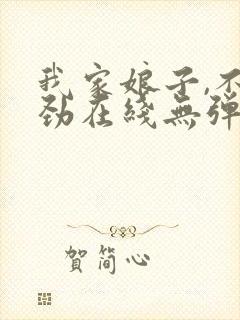 我家娘子,不
劲在綫無弹
賀简心